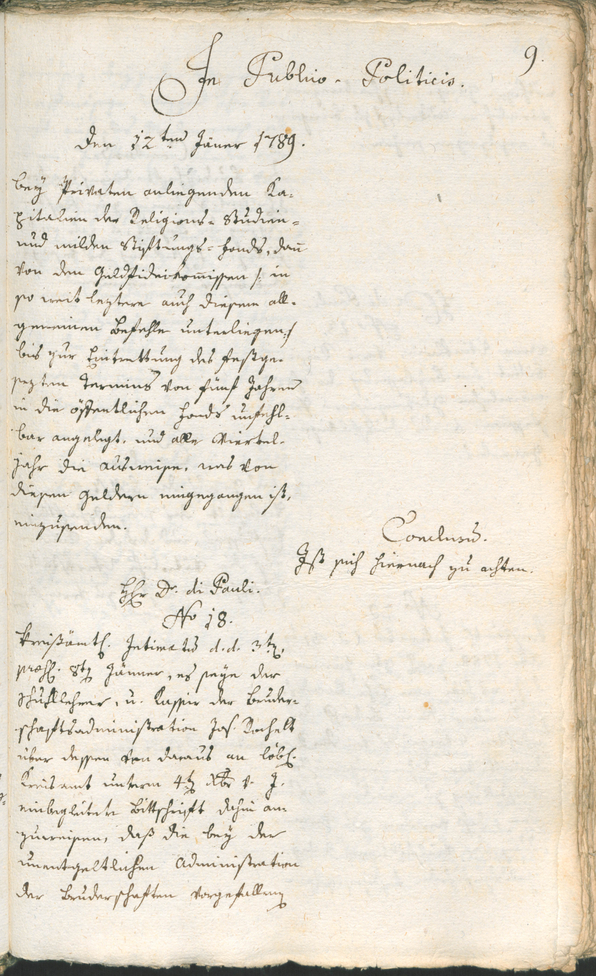 9.
In Publico-Politicis.
Den 12ten Jäner 1789.
bey Privaten anliegenden Ka-
pitalien der Religions- Studien-
und milden Stiftungs-Fonds, dann
von den Geldfideikomissen /: in
so weit leztere auch diesem all-
gemeinen Befehle unterliegen :/
bis zur Eintrettung des festge-
sezten Termins von fünf Jahren
in die öffentlichen Fonds unfehl-
bar angelegt, und alle Viertel-
jahr die Ausweise, was von
diesen Geldern eingegangen ist,
einzusenden.
Conclusum.
Ist sich hiernach zu achten.
Hr Dr. di Pauli.
No 18.
Kreisämtl. Intimatum d.d. 3ten,
praes. 8ten Jänner, es seye der
Schullehrer, u. Kassir der Bruder-
schaftsadministration Jos.
über dessen von daraus an löbl.
Kreisamt unterm 4ten Xbr v. J.
einbegleitete Bittschrift dahin an-
zuweisen, daß die bey der
unentgeltlichen Administration
der Bruderschaften vorgefallenen